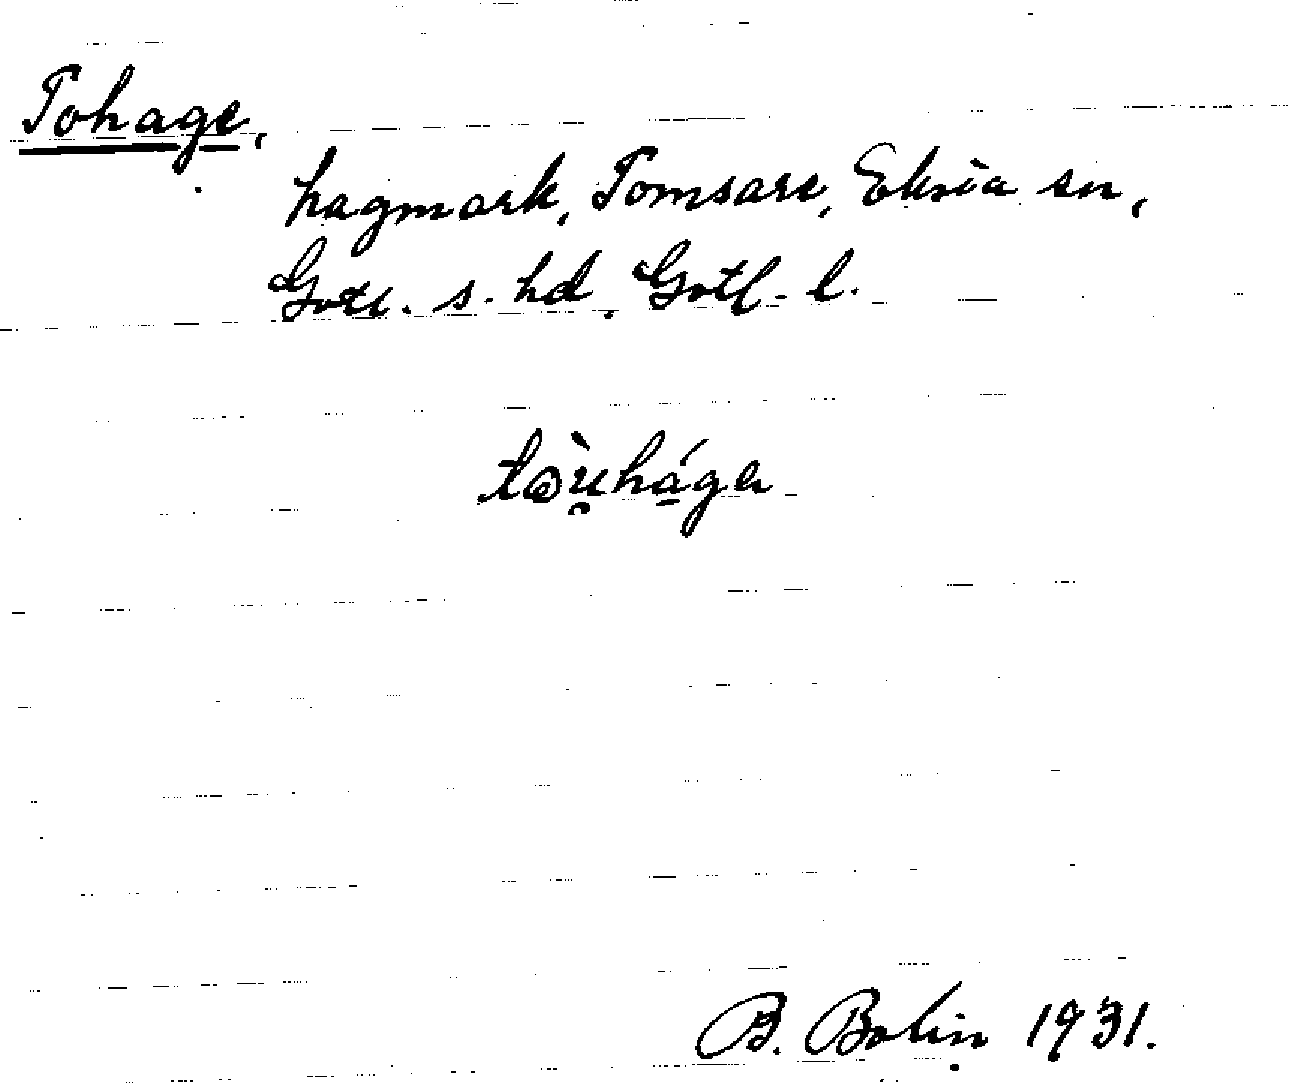 Tohage,
hagmark, Tomsare, Eksta sn,
Gotl. s. hd. Gotl. l.
tɷ̀u̯há̱gɐ
B. Bolin 1931.